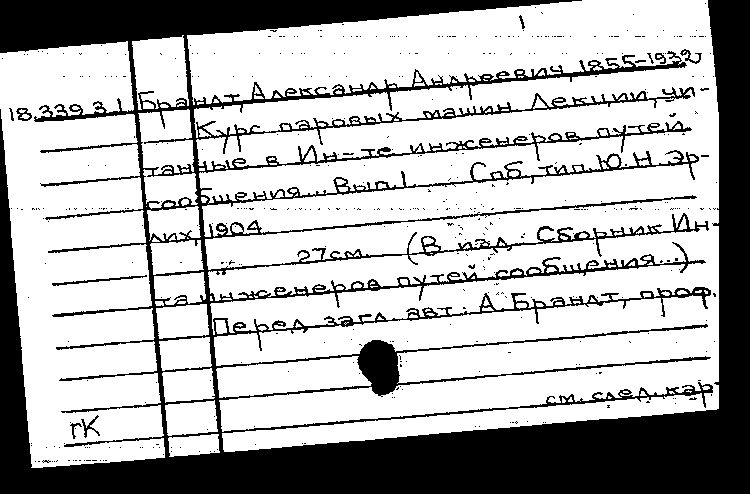 1
18.339.3.1 Брандт, Александр Андреевич, 1855-1932
Курс паровых машин Лекции, чи-
танные в Ин-те инженеров путей
сообщения... Вып. 1. Спб, тип. Ю. Н. Эр-
лих, 1904
27см. (В изд: Сборник Ин-
та инженеров путей сообщения...)
Перед загл. авт: А. Брандт, проф.
см. след. кар
гК